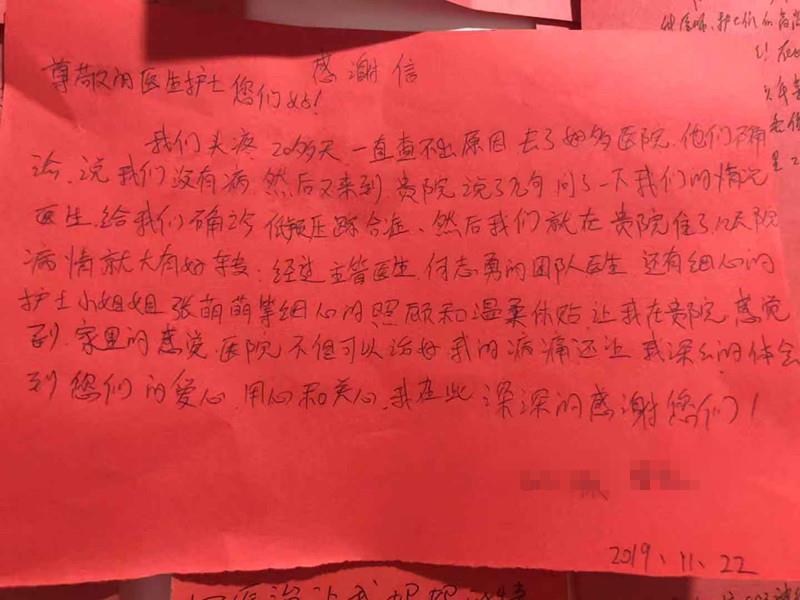 感谢信
尊敬的医生护士您们好!
我们头疼20多天一直查不出原因去了好多医院.他们不确
诊.说我们没有病.然后又来到贵院说了几句问了一下我们的情况
医生.给我们确诊低颅压综合症、然后我们就在贵院住了12天院
病情就大有好转.经过主管医生.何志勇的团队医生还有细心的
护士小姐姐张萌萌等细心的照顾和温柔体贴.让我在贵院感觉
到.家里的感觉.医院不但可以治好我的病痛还让我深么的体会
到您们的爱心.用心和关心.我在此深深的感谢您们!
2019.11.22